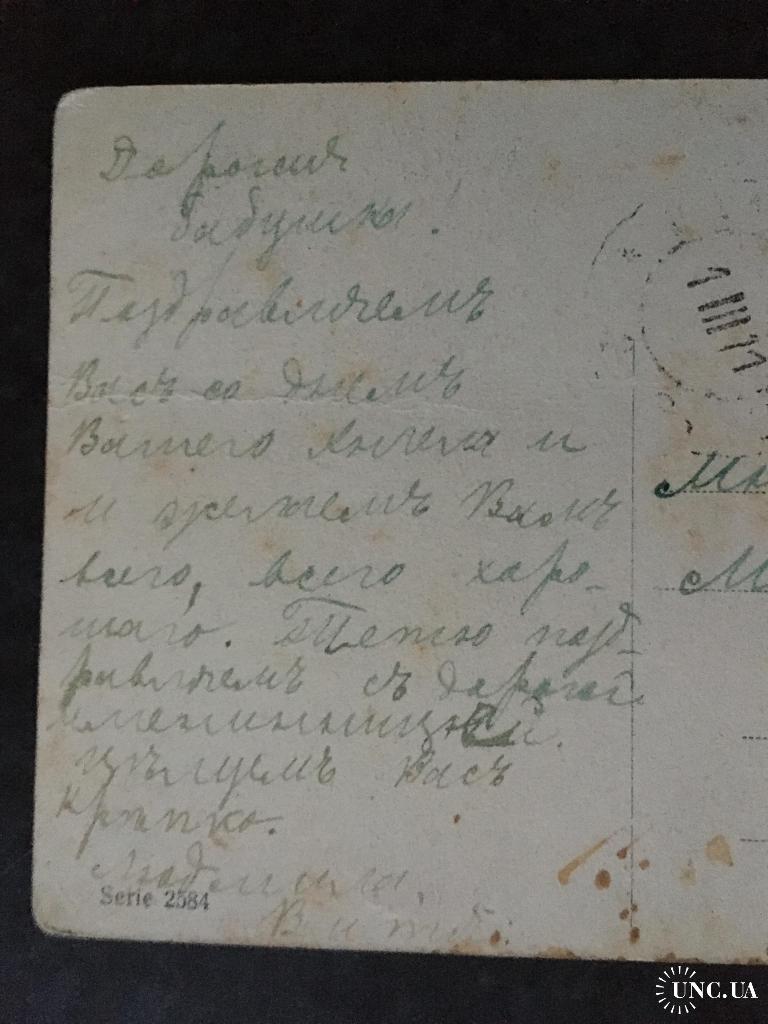 Дорогая
бабушка!
Поздравляемъ
Васъ со днемъ
Вашего Ангела и
и желаемъ Вамъ
всего, всего харо-
шаго. Тетю позд-
равляемъ съ дорогой
именинницей.
Цѣлуемъ Васъ
крѣпко.
Людмила,
Витя.
Serie 2584
1 III 11
М
UNC.UA